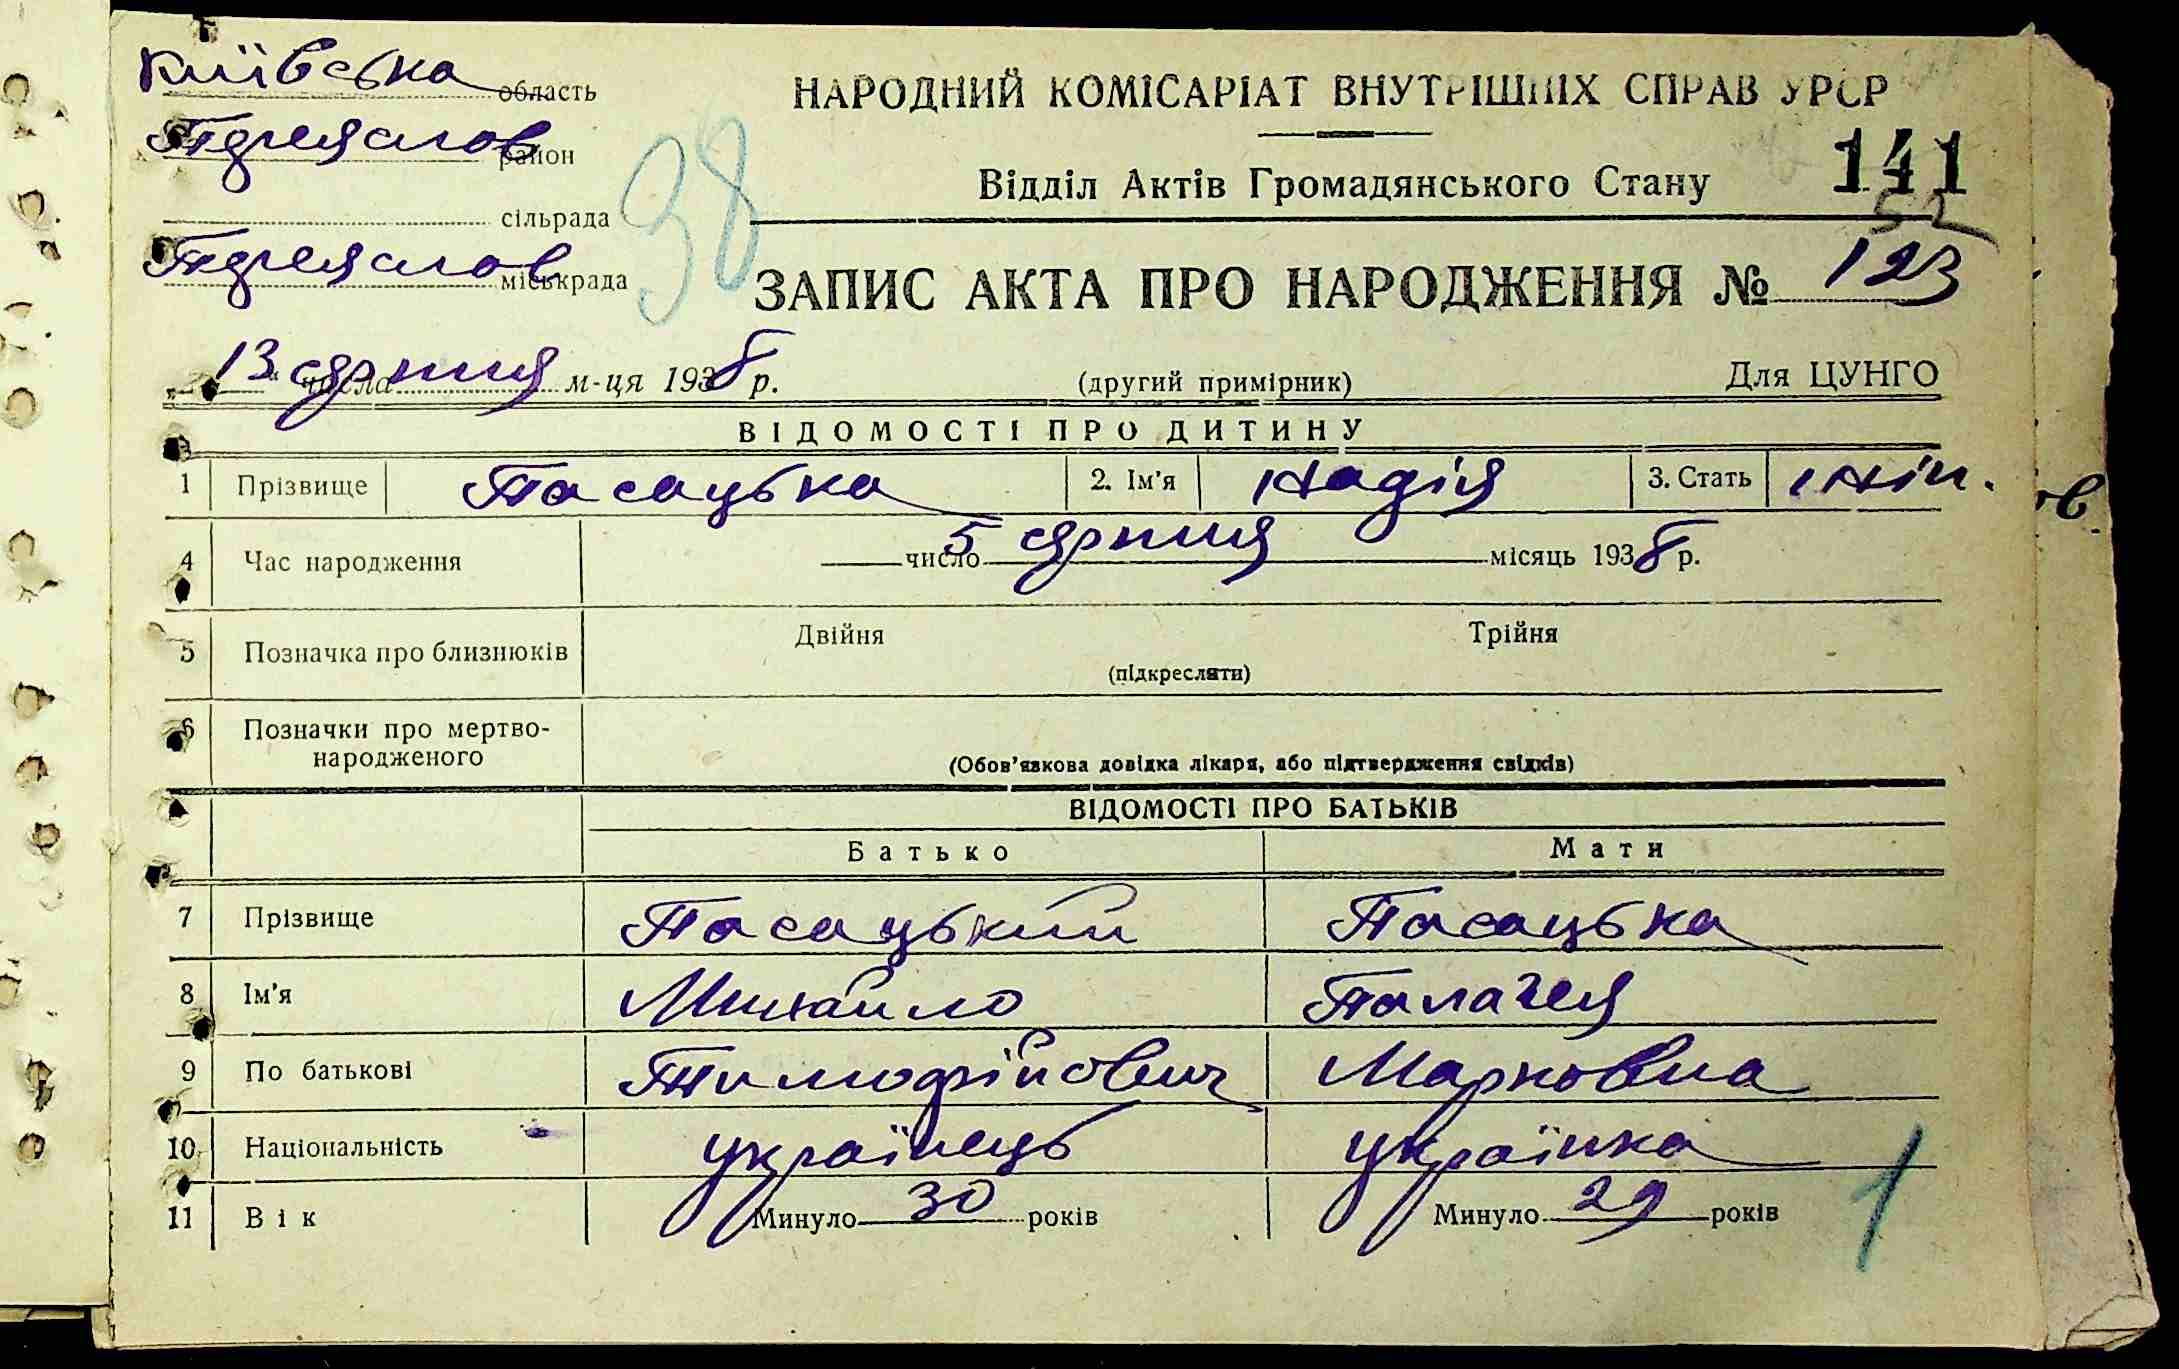 Київська область
НАРОДНИЙ КОМІСАРІАТ ВНУТРІШНІХ СПРАВ УРСР
район
38
141
Відділ Актів Громадянського Стану
52
сільрада
міськрада
ЗАПИС АКТА ПРО НАРОДЖЕННЯ № 123
„13“ числа серпня м-ця 1938 р.
(другий примірник)
Для ЦУНГО
ВІДОМОСТІ ПРО ДИТИНУ
1 Прізвище Пасацька 2. Ім'я Надія 3. Стать жін.
ов.
4 Час народження 5 число серпня місяць 1938 р.
5 Позначка про близнюків Двійня Трійня
(підкреслити)
6 Позначки про мертво-
народженого
(Обов'язкова довідка лікаря, або підтвердження свідків)
ВІДОМОСТІ ПРО БАТЬКІВ
Батько Мати
7 Прізвище Пасацький Пасацька
8 Ім'я Михайло Палагея
9 По батькові Тимофійович Марковна
10 Національність українець українка
11 Вік Минуло 30 років Минуло 29 років
1